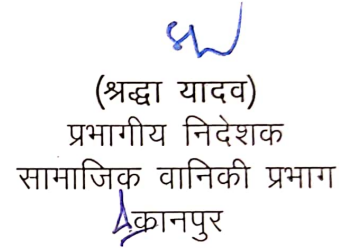 (श्रद्धा यादव)
प्रभागीय निदेशक
सामाजिक वानिकी प्रभाग
कानपुर